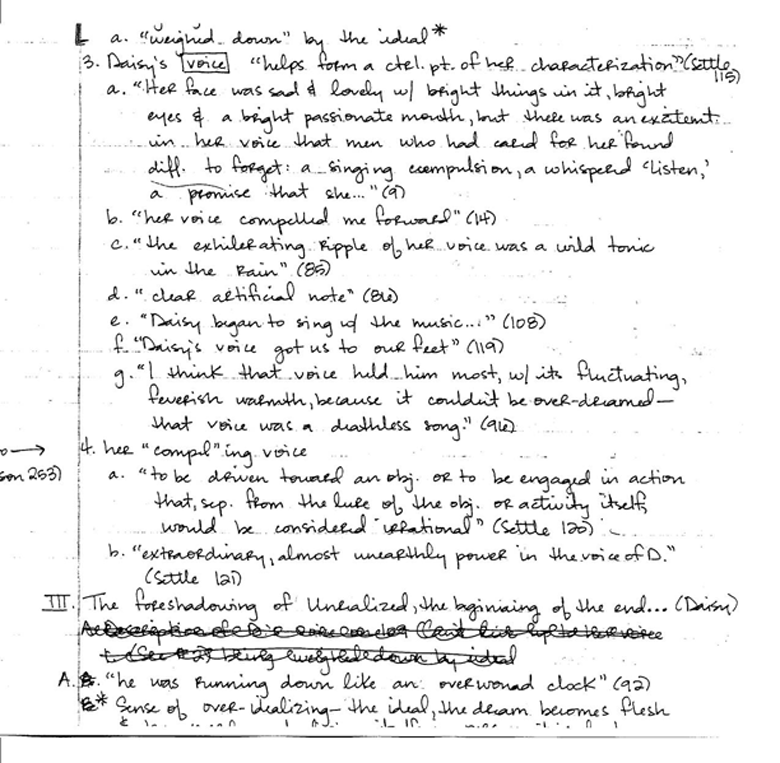 L a. "weighed down" by the ideal*
3. Daisy's voice "helps form a ctrl. pt. of her characterization" (Settle
115)
a. "Her face was sad & lovely w/ bright things in it, bright
eyes & a bright passionate mouth, but there was an excitemt.
in her voice that men who had cared for her found
diff. to forget: a singing compulsion, a whispered 'Listen,'
a promise that she..." (9)
b. "her voice compelled me forward" (14)
c. "the exhilerating ripple of her voice was a wild tonic
in the rain" (85)
d. "clear artificial note" (86)
e. "Daisy began to sing w/ the music..." (108)
f. "Daisy's voice got us to our feet" (119)
g. "I think that voice held him most, w/ its fluctuating,
feverish warmth, because it couldn't be over-dreamed—
that voice was a deathless song." (96)
→ 4. her "compel"ing voice
son 253) a. "to be driven toward an obj. or to be engaged in action
that, sep. from the lure of the obj. or activity itself,
would be considered 'irrational'" (Settle 120)
b. "extraordinary, almost unearthly power in the voice of D."
(Settle 121)
III. The foreshadowing of Unrealized, the beginning of the end... (Daisy)
(See being weighed down by ideal
A. "he was running down like an overwound clock" (92)
B* Sense of over-idealizing— the ideal, the dream becomes flesh